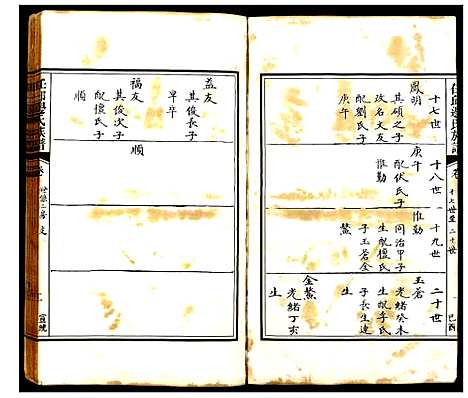 十七世
鳳明
其碩之子
改名文友
配劉氏子
庚午
十八世
庚午
配伏氏子
惟勤
十九世
惟勤
同治甲子
生配檀氏
子玉蒼金
鰲
二十世
玉蒼
光緒癸未
生配李氏
子長生連
生
金鰲
光緒丁亥
生
益友
其俊長子
早卒
福友
其俊次子
配檀氏子
順
順
任邱邊氏族譜
宣統